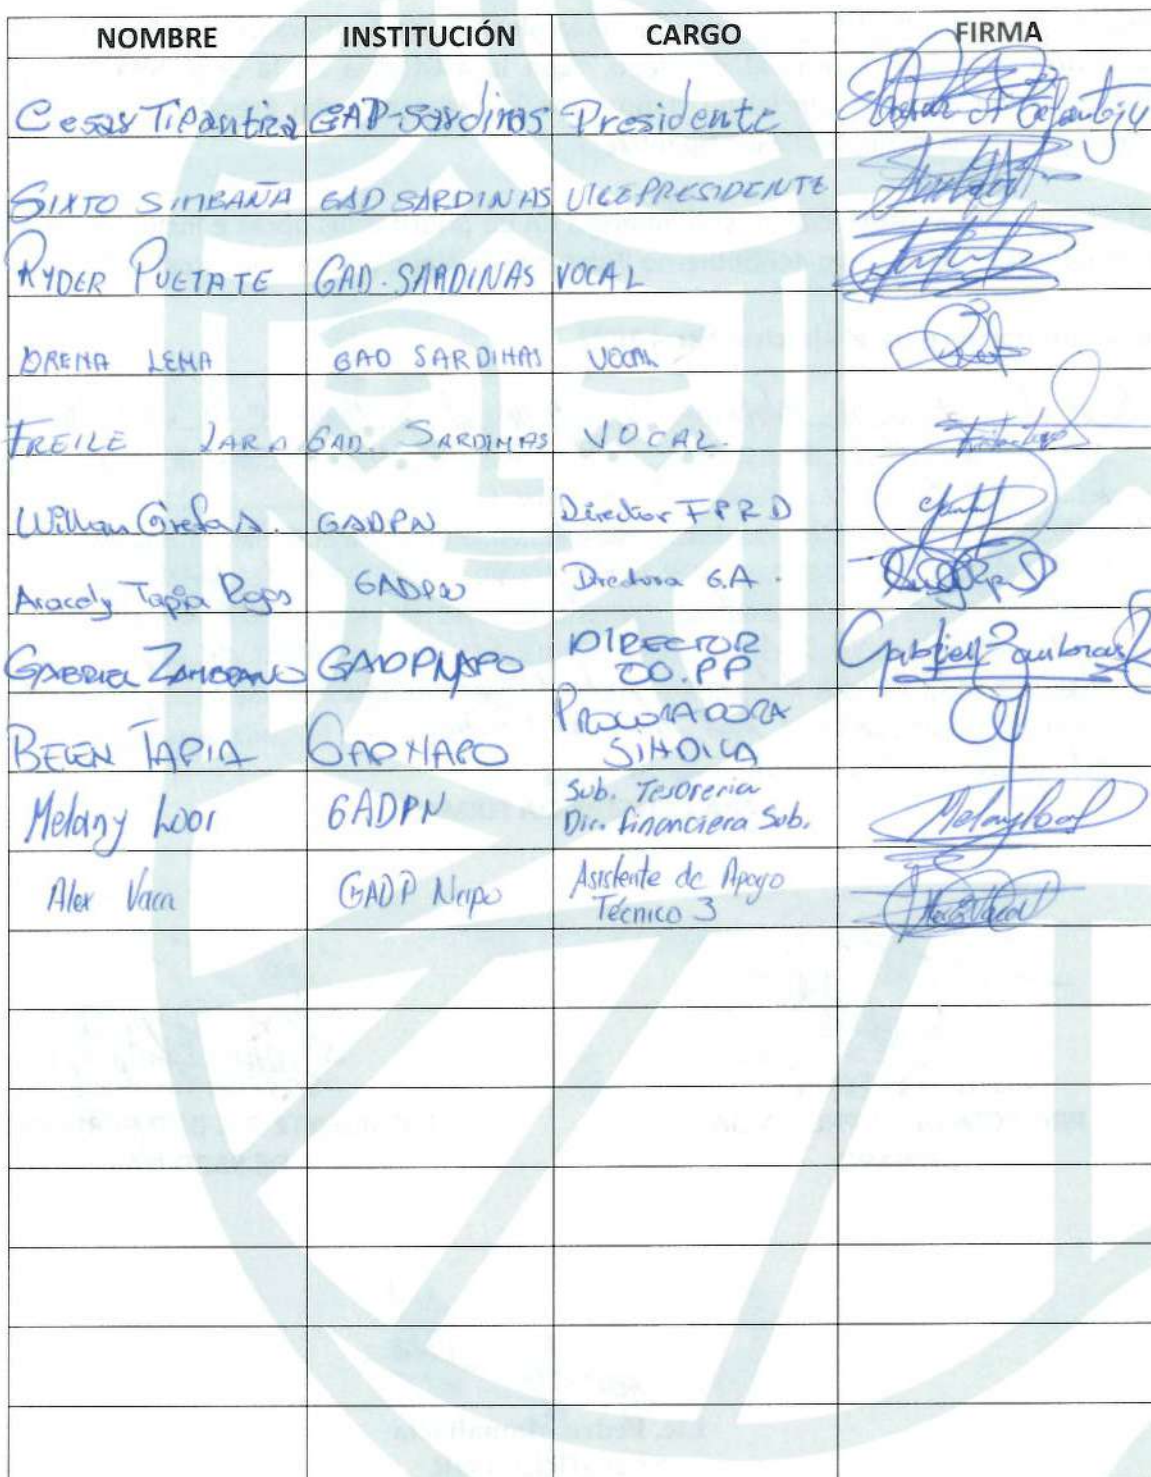 NOMBRE INSTITUCIÓN CARGO FIRMA
Cesar Tipantiza GAD-Sardinas Presidente
SIXTO SIMBAÑA GAD SARDINAS VICEPRESIDENTE
RYDER PUETATE GAD. SARDINAS VOCAL
LEMA GAD SARDINAS VOCAL
FREILE LARA GAD. SARDINAS VOCAL.
Grefa A. GADPN Director FPRD
Aracely Tapia Rojas GADPN Directora G.A.
GABRIEL ZAMBRANO GADPNAPO DIRECTOR
OO.PP Gabriel Zambrano
BELEN TAPIA GADNAPO PROCURADORA
SINDICA
Melany Loor GADPN Sub. Tesoreria
Dir. financiera Sub. Melany Loor
Alex Vaca GADP Napo Asistente de Apoyo
Técnico 3